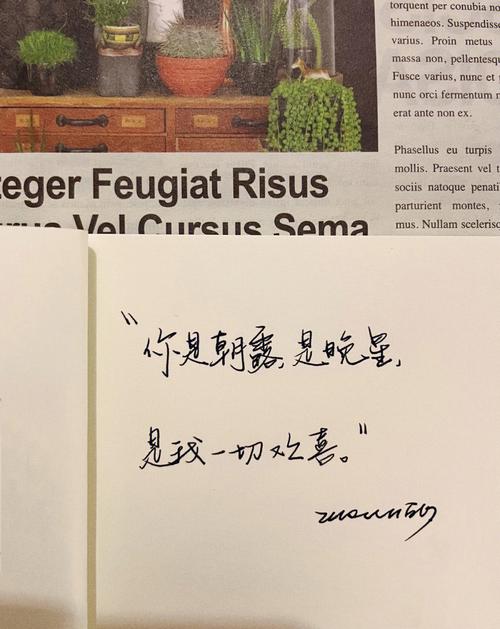 teger Feugiat Risus
Vel Cursus Sema
torquent per conubia no
himenaeos. Suspendisse
varius. Proin metus
massa non, pellentesqu
Fusce varius, nunc et
nunc orci fermentum
erat ante non ex.
Phasellus eu turpis
mollis. Praesent vel t
sociis natoque penati
parturient montes,
mus. Nullam scelerisq
"你是朝露,是晚星,
是我一切欢喜。"